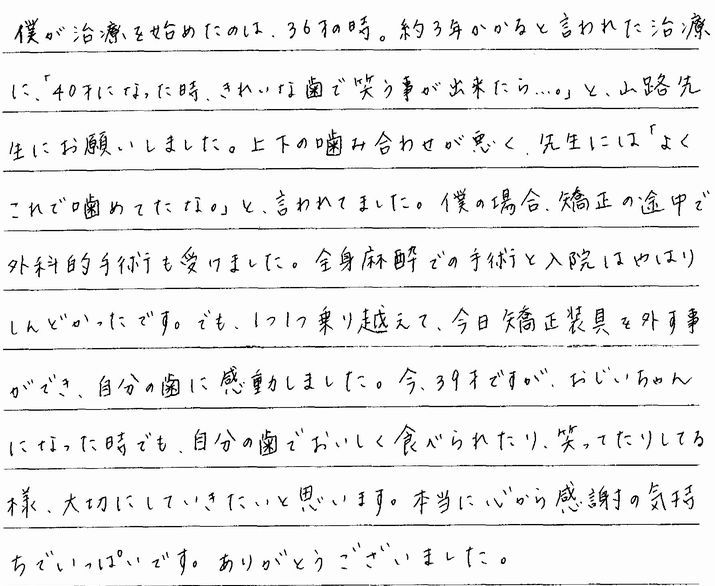 僕が治療を始めたのは、36才の時。約3年かかると言われた治療
に、「40才になった時、きれいな歯で笑う事が出来たら…。」と、山路先
生にお願いしました。上下の噛み合わせが悪く、先生には「よく
これで噛めてたな。」と、言われてました。僕の場合、矯正の途中で
外科的手術も受けました。全身麻酔での手術と入院はやはり
しんどかったです。でも、1つ1つ乗り越えて、今日矯正装具を外す事
ができ、自分の歯に感動しました。今、39才ですが、おじいちゃん
になった時でも、自分の歯でおいしく食べられたり、笑ってたりしてる
様、大切にしていきたいと思います。本当に心から感謝の気持
ちでいっぱいです。ありがとうございました。